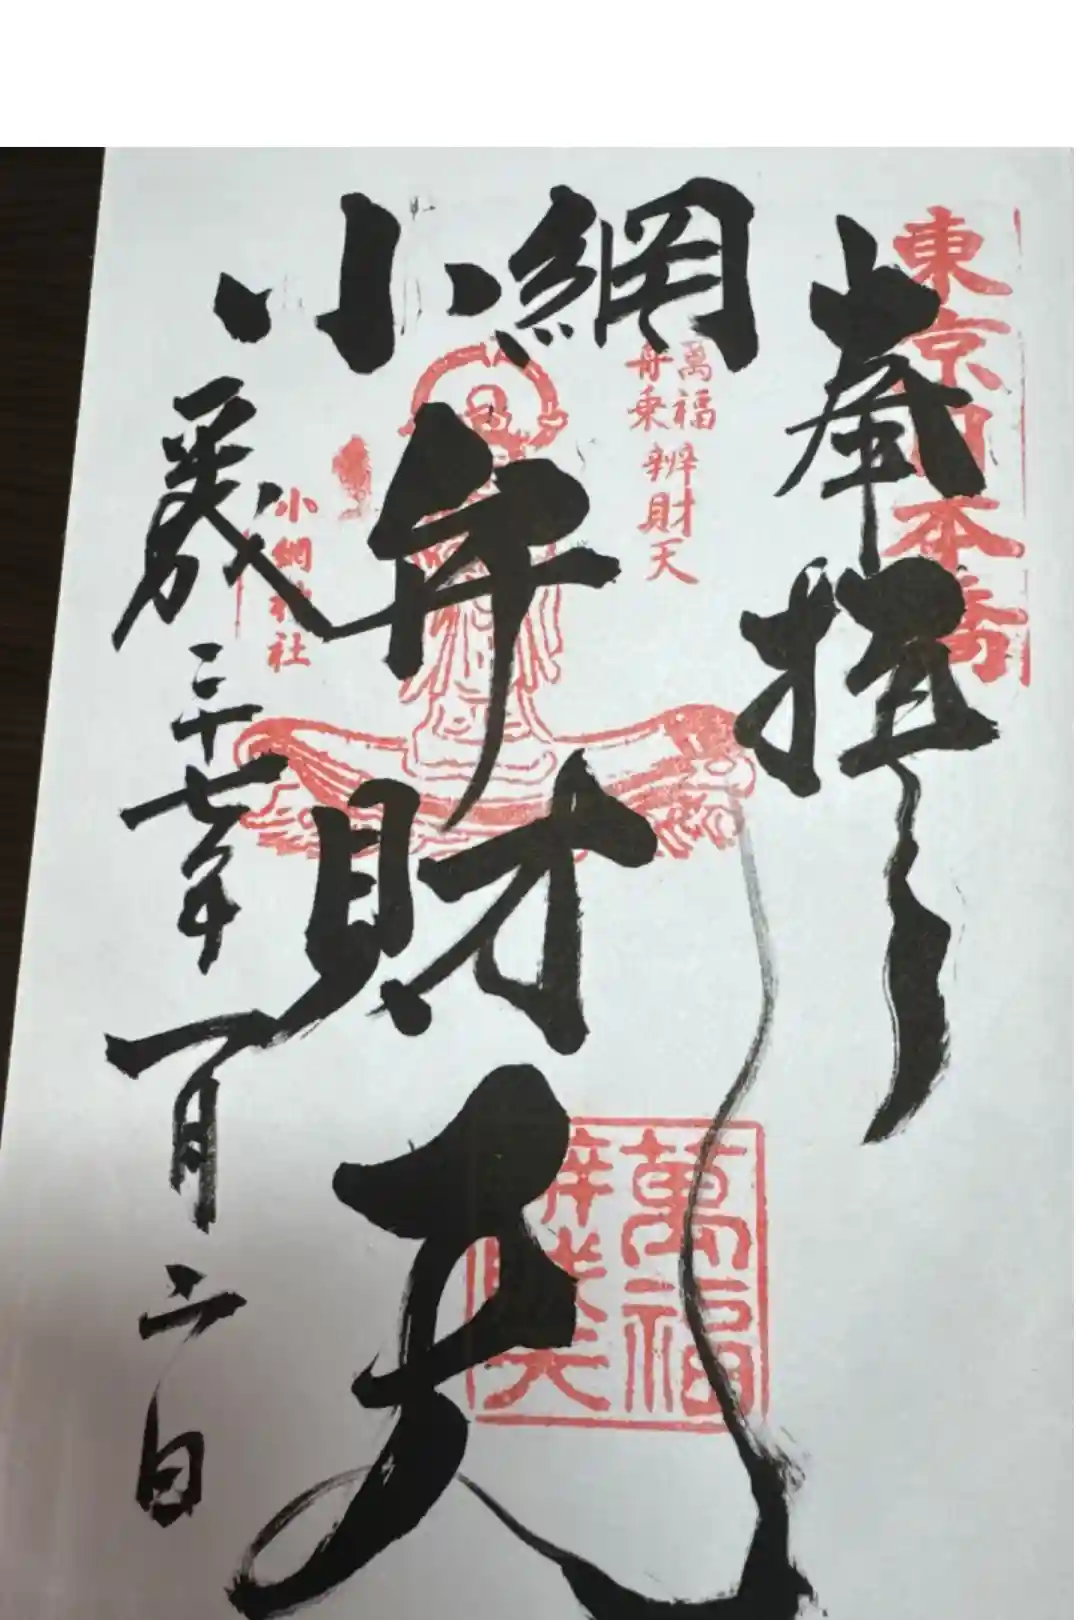 東京日本橋
奉拝
小網
弁財天
萬福
舟乗
辨財天
小網神社
萬福
辨財天
平成二十七年一月二日